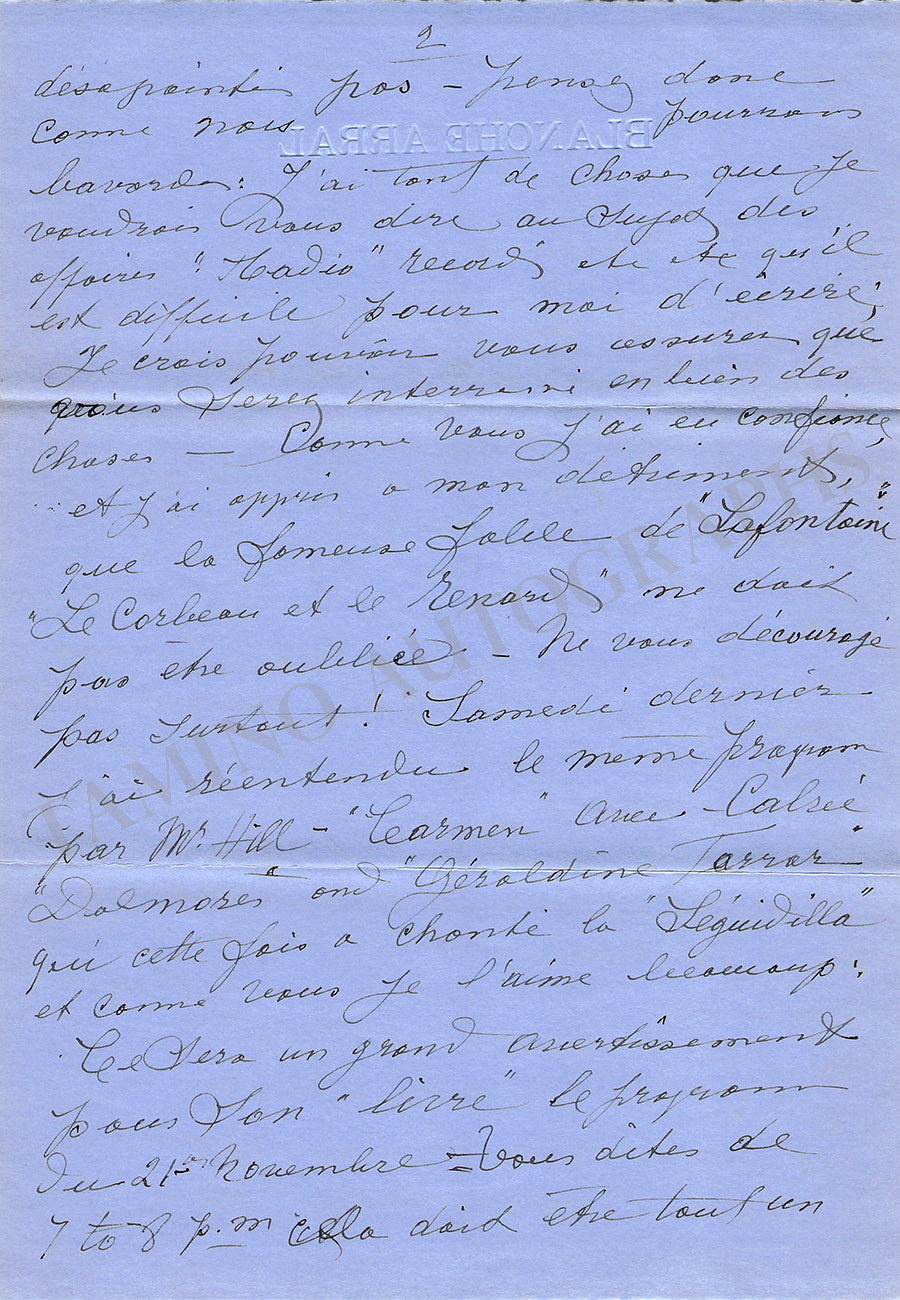 2
désapointés pas – pensez donc
comme nous pourrons
BLANCHE ARRAL
bavarder: J'ai tant de choses que je
voudrais vous dire au sujet des
affaires "Radio" "record" etc etc qu'il
est difficile pour moi d'écrire;
Je crois pouvoir vous assurer que
vous serez interressé en bien des
choses – Comme vous j'ai eu confiance,
et j'ai appris a mon détriment,
que la fameuse fable de "Lafontaine"
"Le Corbeau et le Renard" ne doit
pas être oubliée – Ne vous découragé
pas surtout! Samedi dernier
j'ai réentendu le même program
par Mr. Hill – "Carmen" avec –
"Dalmorès" and "Géraldine Farrar"
qui cette fois a chanté la "Séguidilla"
et comme vous je l'aime beaucoup:
Ce sera un grand avertissement
pour son "livre" le program
du 21 Novembre – Vous dites de
7 to 8 p.m cela doit être tout un
TAMINO AUTOGRAPHS